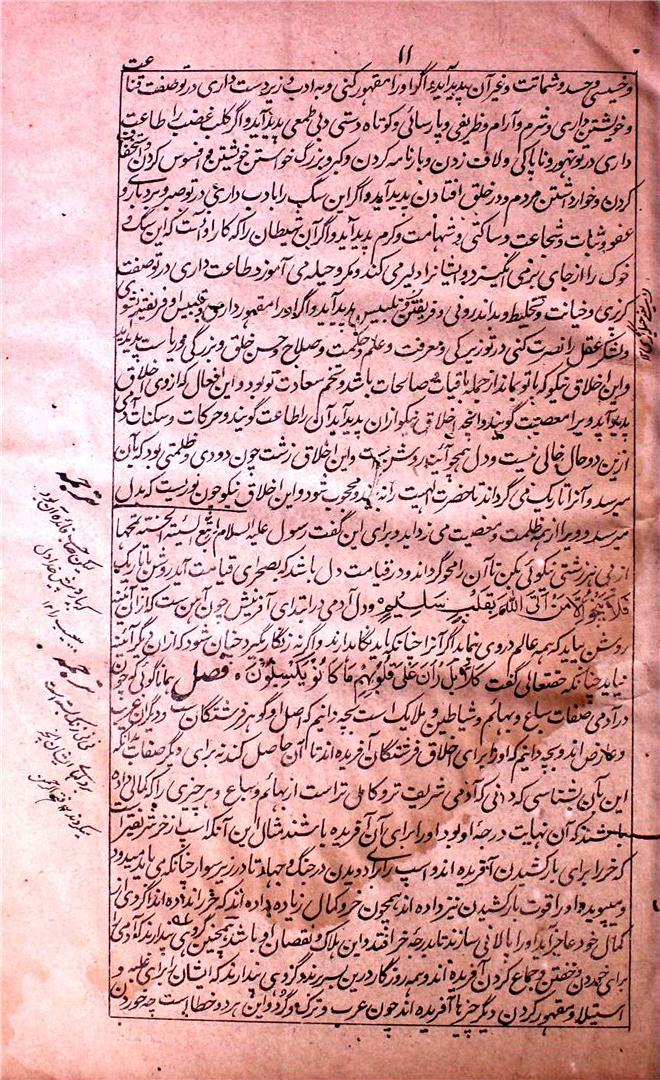 ۱۱
و خسیسی و حسد و شماتت و غیر آن پدید آید و اگر او را مقهور کنی و به ادب و زیر دست داری در تو صفت قنا
و خویشتن داری و شرم و آرام و ظریفی و پارسائی و کوتاه دستی و بی طمعی پدید آید و اگر کلب غضب را طاعت
داری در تو تهور و ناپاکی و لاف زدن و بارنامه کردن و کبر و بزرگ خویشتنی و افسوس کردن و استخفاف
کردن و خوار داشتن مردم و در خلق افتادن پدید آید و اگر این سگ را بادب داری در تو صبر و بردباری و
عفو و ثبات و شجاعت و ساکنی و شهامت و کرم پدید آید و اگر آن شیطان را که کار او آنست که این سگ و
خوک را از جای بر می انگیزد و ایشانرا دلیر می کند و مکر و حیله می آموزد طاعت داری در تو صفت
گربزی و خیانت و تخلیط و بد اندرونی و فریفتن و تلبیس پدید آید و اگر او را مقهور داری و بتلبیس او فریفته نشوی
و لشکر عقل را نصرت کنی در تو زیرکی و معرفت و علم و حکمت و صلاح و حسن خلق و بزرگی و ریاست پدید آید
و این اخلاق نیکو که با تو بماند از جمله باقیات صالحات باشد و تخم سعادت تو بود و این افعال که از وی اخلاق
بد پدید آید ویرا معصیت گویند و آنچه اخلاق نیکو از آن پدید آید آن را طاعت گویند و حرکات و سکنات آدمی
ازین دو حال خالی نیست و دل همچو آئینه روشن است و این اخلاق زشت چون دودی و ظلمتی بود که بآن
میرسد و آنرا تاریک می گرداند تا حضرت الهیت را نه بیند و محجوب شود و این اخلاق نیکو چون نوریست که بدل
میرسد و ویرا از همه ظلمت و معصیت می زداید و برای این گفت رسول علیه السلام اتبع السیئة الحسنة تمحها
از پی هر زشتی نیکوئی بکن تا آن را محو گرداند و در قیامت دل باشد که بصحرای قیامت آید روشن یا تاریک
فَلَا یَنْجُو إِلَّا مَنْ أَتَى اللّٰهَ بِقَلْبٍ سَلِیْمٍ و دل آدمی در ابتدای آفرینش چون آهن ست که ازان آئینه
روشن بیاید که همه عالم در وی نماید اگر آنرا چنانکه باید نگاه دارند و اگر نه زنگار گیرد و چنان شود که ازان دیگر آئینه
نیاید چنانکه حقتعالی گفت كَلَّا بَلْ رَانَ عَلٰى قُلُوْبِهِمْ مَا كَانُوْا يَكْسِبُوْنَ ۰ فصل همانا گوئی که چون
در آدمی صفات سباع و بهائم و شیاطین و ملایک است بچه دانیم که اصل او گوهر فرشتگان ست و دیگران غریب
و عارض اند و بچه دانیم که او را برای اخلاق فرشتگان آفریده اند تا آن حاصل کند نه برای دیگر صفات بدانکه
این بآن بشناسی که دانی که آدمی شریف تر و کامل تر است از بهائم و سباع و هر چیزی را که کمالی داده
باشند که آن نهایت درجۀ او بود او را برای آن آفریده باشند مثال این آنکه اسپ از خر شریفتر است
که خر را برای بار کشیدن آفریده اند و اسپ را برای دویدن در جنگ و جهاد تا در زیر سوار چنانکه می باید میدود
و میپوید و او را قوت بار کشیدن نیز داده اند همچون خر و کمال زیاده داده اند که خر را نداده اند اگر وی از
کمال خود عاجز آید او را پالانی سازند تا بدرجۀ خر افتد و این هلاک و نقصان او باشد همچنین گروهی پندارند که آدمی را
برای خوردن و خفتن و جماع کردن آفریده اند و همه روزگار درین بسر برند و گروهی پندارند که ایشان را برای غلبه و
استیلا و مقهور کردن دیگر چیزها آفریده اند چون عرب و ترک و کرد و این هر دو خطا است چه خوردن
ترجمه
ترجمه